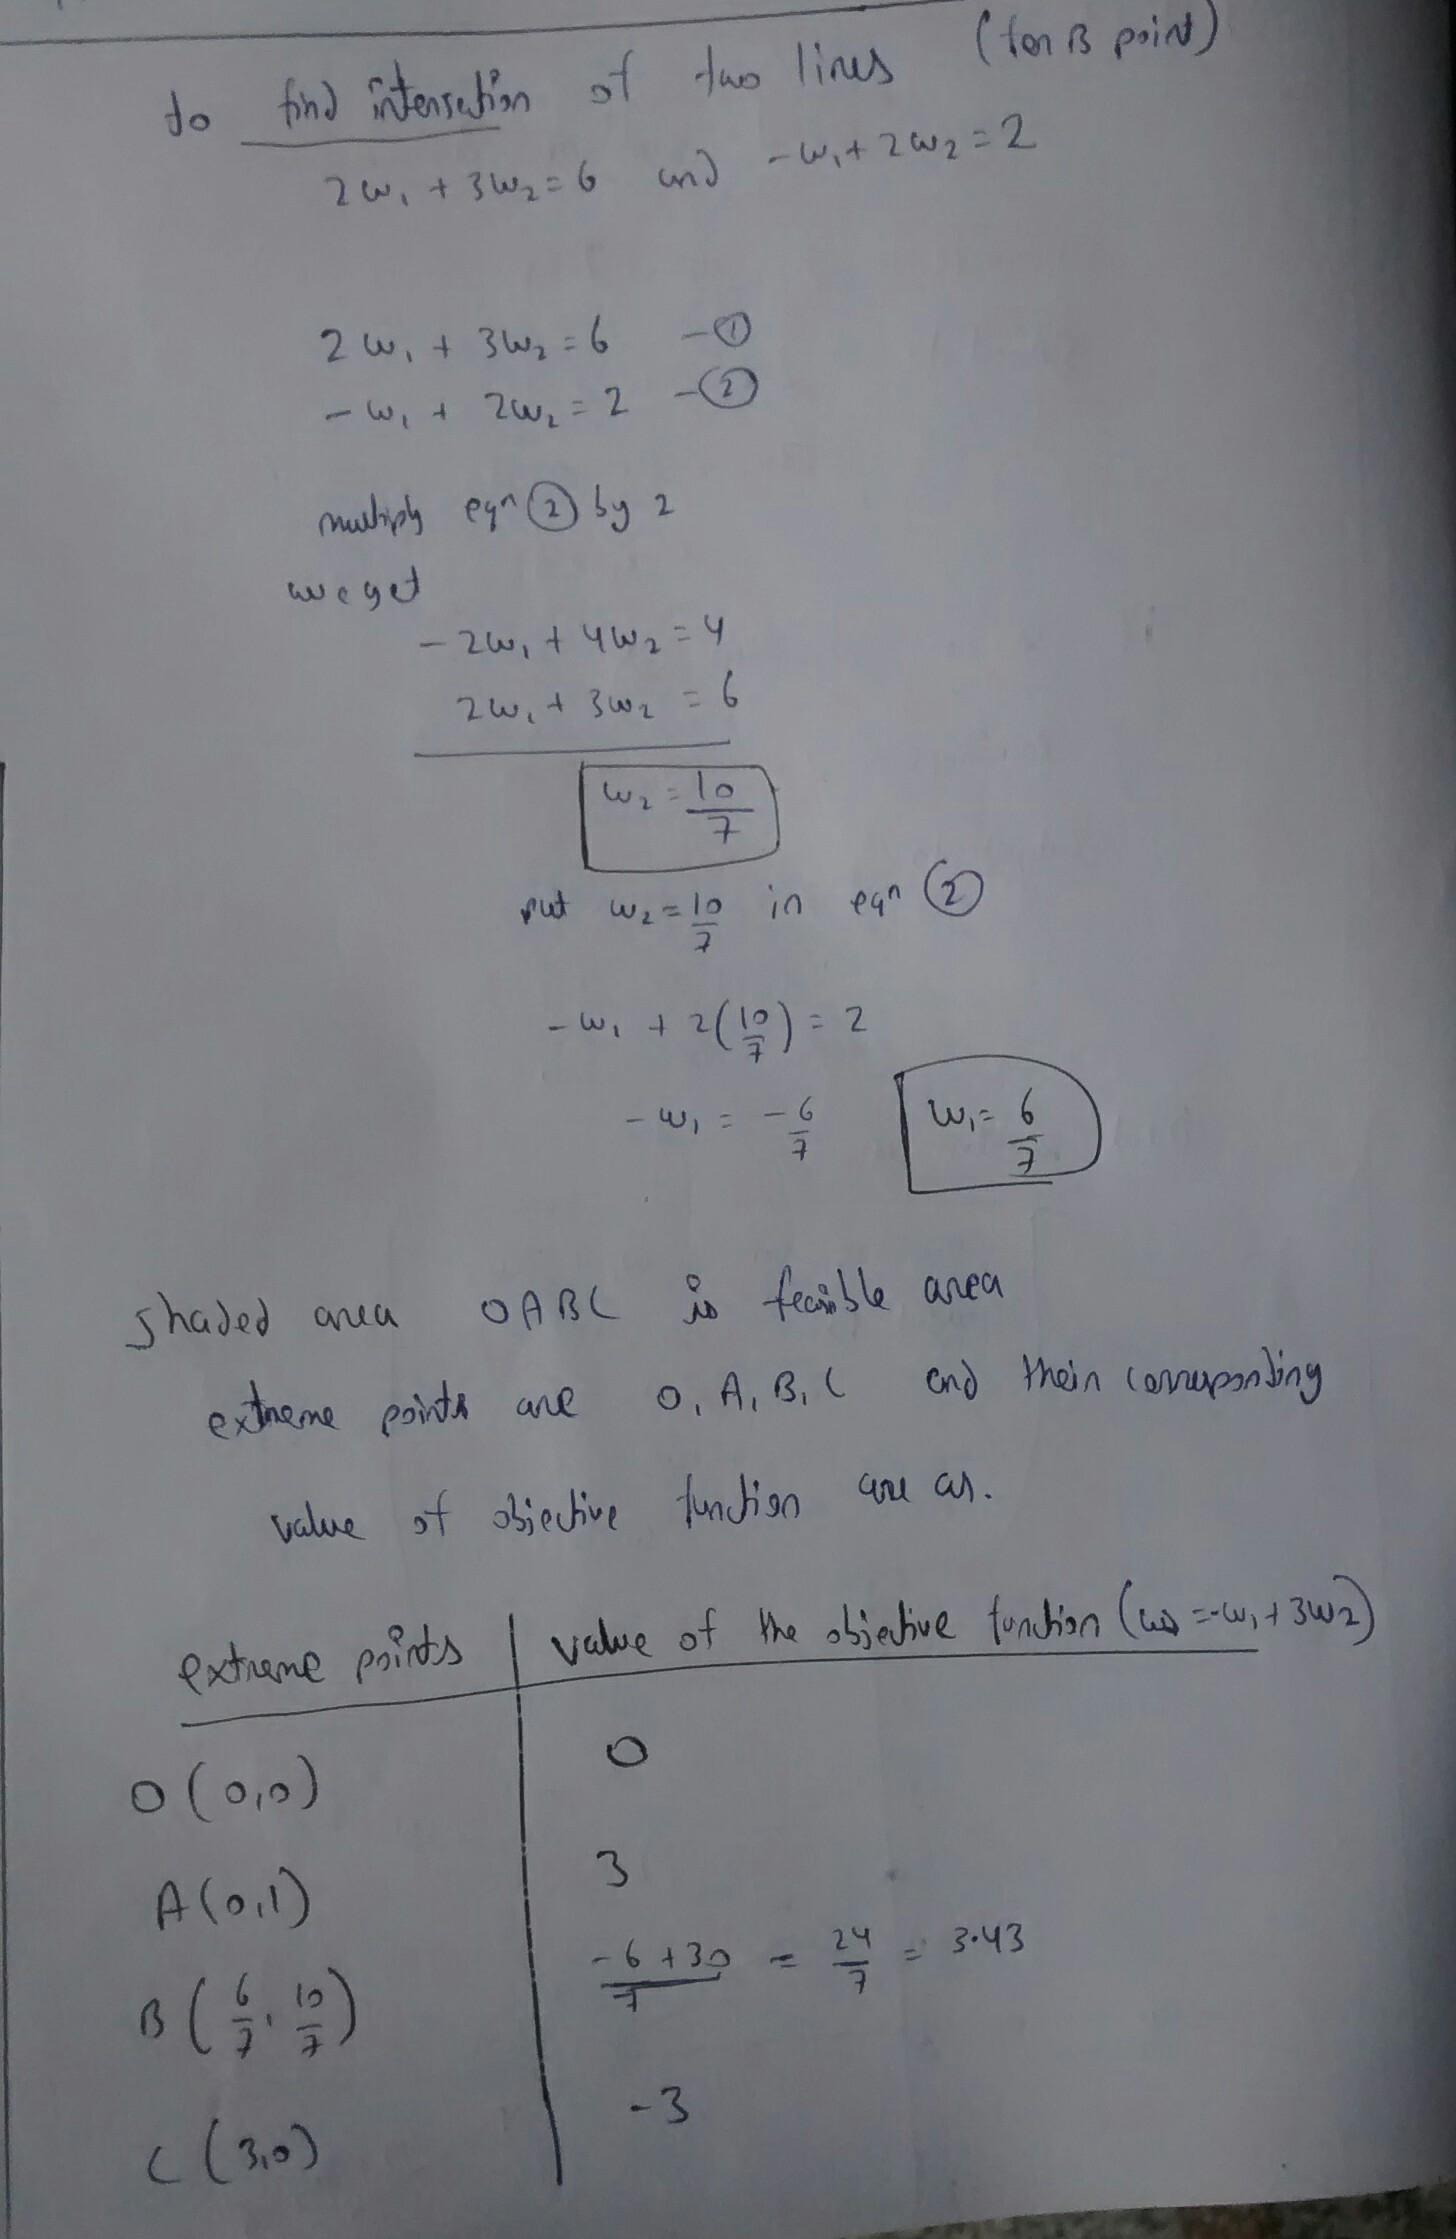 to find intersection of two lines (for B point)
2w₁ + 3w₂ = 6 and -w₁ + 2w₂ = 2
2w₁ + 3w₂ = 6 - ①
-w₁ + 2w₂ = 2 - ②
multiply eqⁿ ② by 2
we get
- 2w₁ + 4w₂ = 4
2w₁ + 3w₂ = 6
w₂ = 10/7
put w₂ = 10/7 in eqⁿ ②
-w₁ + 2(10/7) = 2
-w₁ = -6/7 w₁ = 6/7
shaded area OABC is feasible area
extreme points are O, A, B, C and their corresponding
value of objective function are as.
extreme points | value of the objective function ( = -w₁ + 3w₂)
O(0,0) 0
A(0,1) 3
B(6/7, 10/7) -6+30/7 = 24/7 = 3.43
C(3,0) -3